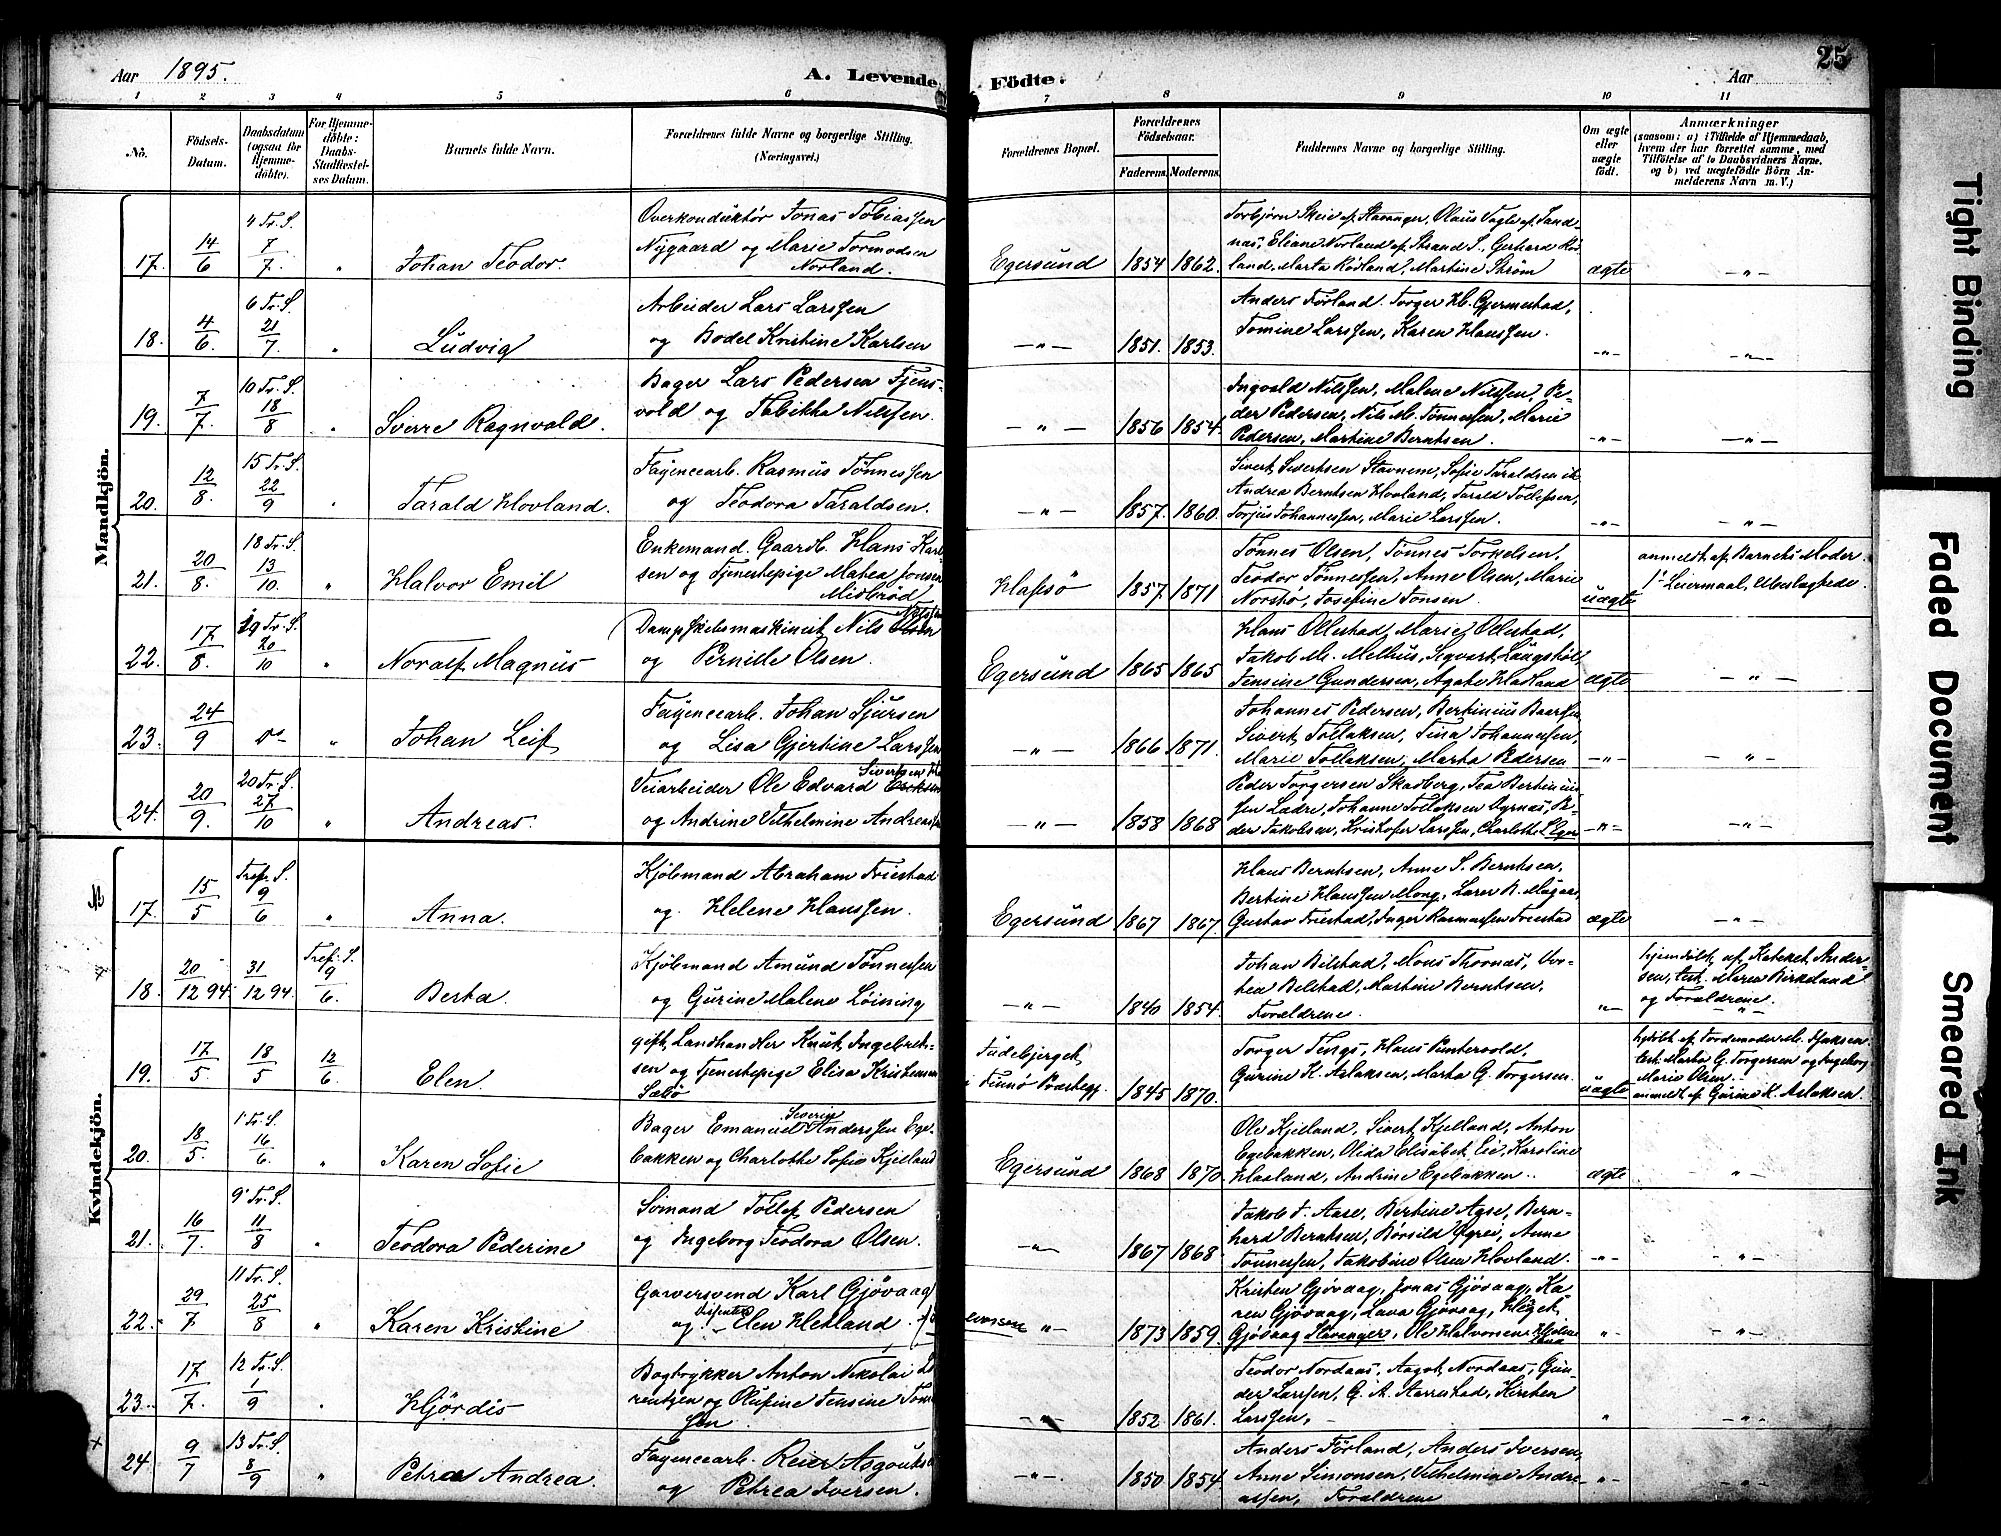 Aar 1895.
A. Levende
Födte.
Aar
25
1 2 3 4 5 6 7 8 9 10 11
No.
Födsels-
Datum.
Daabsdatum
(ogsaa for
Hjemme-
döbte).
For Hjemme-
döbte:
Daabs-
Stadfæstel-
ses Datum.
Barnets fulde Navn.
Forældrenes fulde Navne og borgerlige Stilling.
(Næringsvei.)
Forældrenes Bopæl.
Forældrenes
Födselsaar.
Faderens.
Moderens.
Faddernes Navne og borgerlige Stilling.
Om ægte
eller
uægte
født.
Anmærkninger
(saasom: a) i Tilfælde af Hjemmedaab,
hvem der har forrettet samme, med
Tilföielse af to Daabsvidners Navne,
og b) ved uægtefödte Börn An-
melderens Navn m. V.)
Mandkjön.
17. 14/6 4 Tr. S. 7/7. " Johan Teodor.
Overkonduktör Jonas Tobiassen
Nygaard og Marie Tormodsen
Norland.
Egersund 1854 1862.
Torbjörn Skeie af Stavanger, Olaus Vagle af Sand-
nas, Eliane Norland af Strand S., Gerhard Röd-
land, Marta Rödland, Martine Ström
ægte -"-
18. 4/6. 6 Tr. S. 21/7. " Ludvig
Arbeider Lars Larssen
og Bodel Kristine Karlsen
-"- 1851. 1853.
Anders Förland. Torger H. Gjermestad,
Tomine Larssen, Karen Hanssen.
-"- -"-
19. 7/7. 10 Tr. S. 18/8 " Sverre Ragnvald.
Bager Lars Pedersen Tjens-
vold og Tobikka Nilssen.
-"- 1856 1854.
Ingvald Nilssen, Malene Nilssen, Pe-
der Pedersen, Nils M. Tönnessen, Marie
Pedersen, Martine Berntsen.
-"- -"-
20. 12/8. 15 Tr. S. 22/9 " Tarald Hovland.
Fayencearb. Rasmus Tönnessen
og Teodora Taraldsen.
-"- 1857. 1860.
Sivert Sivertsen Stavnem, Sofie Taraldsen
Andrea Berntsen Hovland, Tarald Tollefsen,
Torjus Johannessen, Marie Larssen.
-"- -"-
21. 20/8. 18 Tr. S. 13/10. " Halvor Emil
Enkemand. Gaardb. Hans Karl-
sen og Tjenestepige Matea Jonsen
Midbröd
Hafsö 1857. 1871
Tönnes Olsen, Tönnes Torkelsen,
Teodor Tönnessen, Anne Olsen, Marie
Norstö, Josefine Jonsen.
uægte
anmeldt af Barnets Moder.
1ste Leiermaal,
22. 17/8. 19 Tr. S. 20/10 " Noralf Magnus
Dampskibsmaskinist Nils Nilssen
og Pernille Olsen.
Egersund 1865 1865
Hans Ollestad, Marie Ollestad,
Jakob M. Melhus, Sigvart Laugsköl,
Jensine Gundersen, Agate Hadland
ægte -"-
23. 24/9 do " Johan Leif
Fayencearb. Johan Sjursen
og Lisa Gjertine Larssen
-"- 1866 1871.
Johannes Pedersen, Bertinius Baarsen
Sivert Tollaksen, Tina Johannessen,
Marie Tollaksen, Marta Pedersen
-"- -"-
24. 20/9. 20 Tr. S. 27/10 " Andreas.
Veiarbeider Ole Edvard Sivertsen
og Andrine Vilhelmine Andreassen
-"- 1858 1868
Peder Torgersen Skadberg, Tea Bertinius-
sen Ladre, Johanne Tollaksen Dyrnas, Pe-
der Jakobsen, Kristofer Larssen, Charlotte
-"- -"-
Kvindekjön.
17. 15/5 Tref. S. 9/6 " Anna.
Kjöbmand Abraham Friestad
og Helene Hanssen.
Egersund 1867 1867.
Hans Berntsen, Anne S. Berntsen,
Bertine Hanssen Mong, Laver B. Mögaard,
Gustav Friestad, Inger Rasmussen Friestad
ægte -"-
18. 20/12 94. 31/12 94. Tref. S. 9/6. Berta.
Kjöbmand Amund Tönnessen
og Gurine Malene Löining
-"- 1840 1854.
Johan Bilstad, Mons Thornas, Dor-
tea Bilstad, Martine Berntsen,
Forældrene.
"
hjemdöbt af Kateket Ander-
sen, test. Maren Birkeland
og Forældrene.
19. 17/5 18/5 12/6 Elen.
gift, Landhandler Knut Ingebret-
sen og Tjenestepige Elisa Kristensen
Sæbö
Judebjerget
i Finnö Præstegj. 1845 1870.
Torger Tengs, Hans Puntervold,
Gurine K. Aslaksen, Marta G. Torgersen.
uægte
hjdöbt af Jordemoder Isaksen
test. Marta G. Torgersen og Ingeborg
Marie Olsen.
anmeldt af Gurine K. Aslaksen.
20. 18/5. 1 Tr. S. 16/6. " Karen Sofie
Bager Emanuel Severin Anderssen Ege-
bakken og Charlotte Sofie Kjelland
Egersund 1868 1870
Ole Kjelland, Sivert Kjelland, Anton
Egebakken, Olida Elisabet Eie, Karoline
Haaland, Andrine Egebakken.
ægte "
21. 16/7. 9 Tr. S. 11/8 " Teodora Pederine
Sömand Tollef Pedersen
og Ingeborg Teodora Olsen.
-"- 1867 1868
Jakob J. Aase, Bertine Aase, Bern-
hard Berntsen, Börsild Ögrei, Anne
Tönnessen, Jakobine Olsen Hovland.
-"- "
22. 29/7 11 Tr. S. 25/8 " Karen Kristine
Garversvend Karl Gjövaag
og Elen Hetland.
-"- 1873 1859.
Kristen Gjövaag, Jonas Gjövaag, Ka-
ren Gjövaag, Lava Gjövaag,
Gjövaag Stavanger, Ole Halvorsen
" -"-
23. 17/7. 12 Tr. S. 1/9 " Hjördis
Bogtrykker Anton Nikolai Lo-
rentzen og Olufine Jensine Tönnes-
sen.
-"- 1852. 1861.
Teodor Nordaas, Aagot Nordaas, Gun-
der Larssen, G. A. Aarrestad, Kirsten
Larssen,
" -"-
24 9/7 13 Tr. S. 8/9 " Petra Andrea.
Fayencearb. Reier Asgautsen
og Petrea Iversen.
-"-. 1850 1854.
Anders Förland, Anders Iversen,
Anne Simonsen, Vilhelmine Andre-
assen, Forældrene
-"- -"-
Tight Binding
Faded Document
Smeared Ink